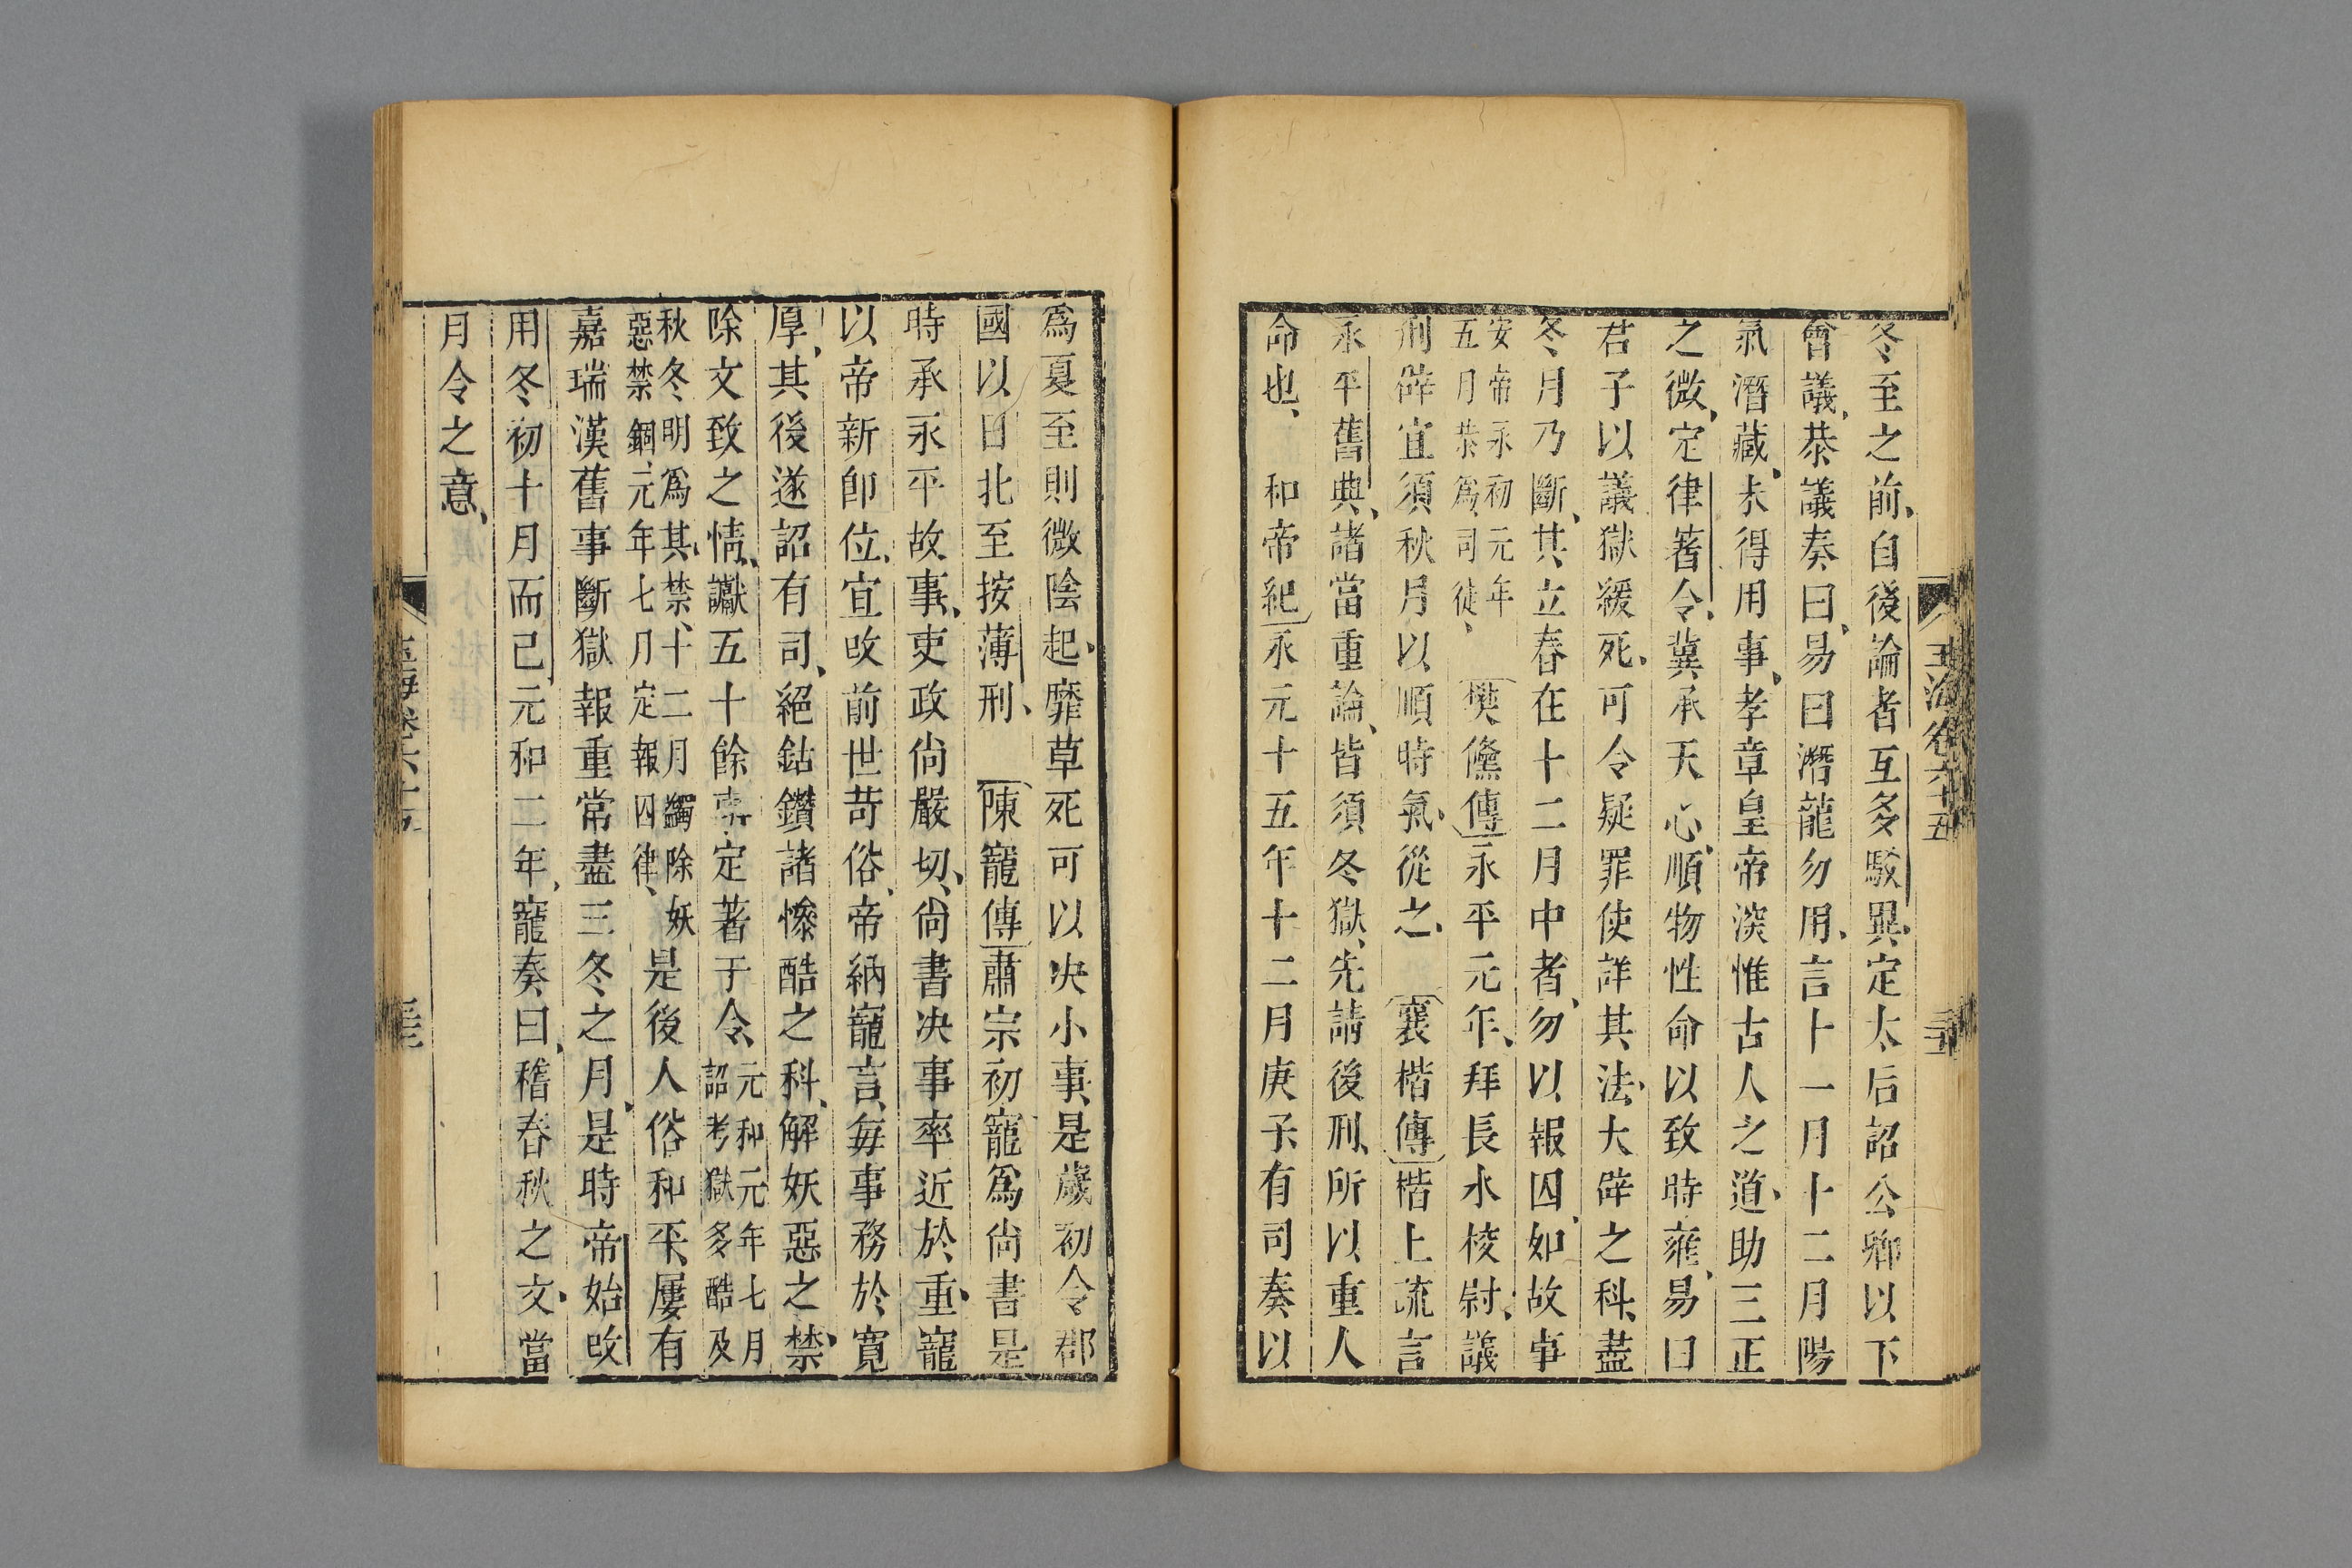 玉海卷六十五
冬至之前、自後論者互多駁異、定太后詔公卿以下
會議、恭議奏曰、易曰潛龍勿用、言十一月十二月陽
氣潛藏、未得用事、孝章皇帝深惟古人之道、助三正
之微、定律著令、冀承天心、順物性命以致時雍、易曰
君子以議獄緩死、可令疑罪使詳其法、大辟之科、盡
冬月乃斷、其立春在十二月中者、勿以報囚、如故事
安帝永初元年
五月恭爲司徒、
樊儵傳永平元年、拜長水校尉、議
刑辟宜須秋月以順時氣、從之、襄楷傳楷上疏言
永平舊典、諸當重論、皆須冬獄、先請後刑、所以重人
命也、和帝紀永元十五年十二月庚子、有司奏以
爲夏至則微陰起、靡草死可以决小事、是歲初令郡
國以日北至按薄刑、陳寵傳肅宗初寵爲尚書是
時承永平故事、吏政尚嚴切、尚書决事率近於重、寵
以帝新卽位、宜改前世苛俗、帝納寵言、每事務於寬
厚、其後遂詔有司、絕鈷鑽諸慘酷之科、解妖惡之禁、
除文致之情、讞五十餘事定著于令、
元和元年七月
詔考獄多酷及
秋冬明爲其禁、十二月蠲除妖
惡禁錮、元年七月定報囚律、
是後人俗和平、屢有
嘉瑞漢舊事斷獄報重常盡三冬之月、是時帝始改
用冬初十月而已元和二年、寵奏曰、稽春秋之文、當
月令之意、
玉海卷六十五